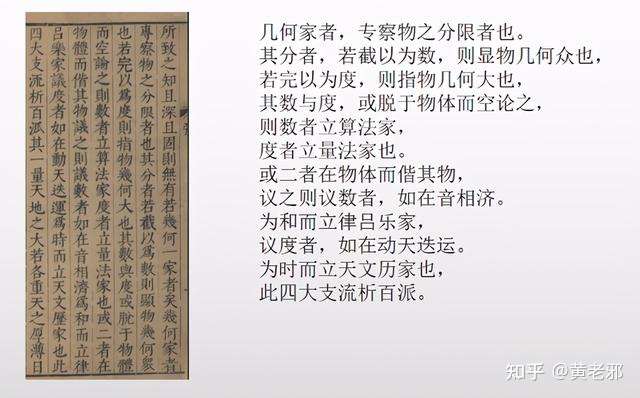 所致之知且深且固則無有若幾何一家者矣幾何家者
專察物之分限者也其分者若截以爲數則顯物幾何衆
也若完以爲度則指物幾何大也其數與度或脫于物體
而空論之則數者立算法家度者立量法家也或二者在
物體而偕其物議之則議數者如在音相濟爲和而立律
呂樂家議度者如在動天迭運爲時而立天文歷家也此
四大支流析百派其一量天地之大若各重天之厚薄日
几何家者，专察物之分限者也。
其分者，若截以为数，则显物几何众也，
若完以为度，则指物几何大也，
其数与度，或脱于物体而空论之，
则数者立算法家，
度者立量法家也。
或二者在物体而偕其物，
议之则议数者，如在音相济。
为和而立律吕乐家，
议度者，如在动天迭运。
为时而立天文历家也，
此四大支流析百派。
知乎 @黄老邪